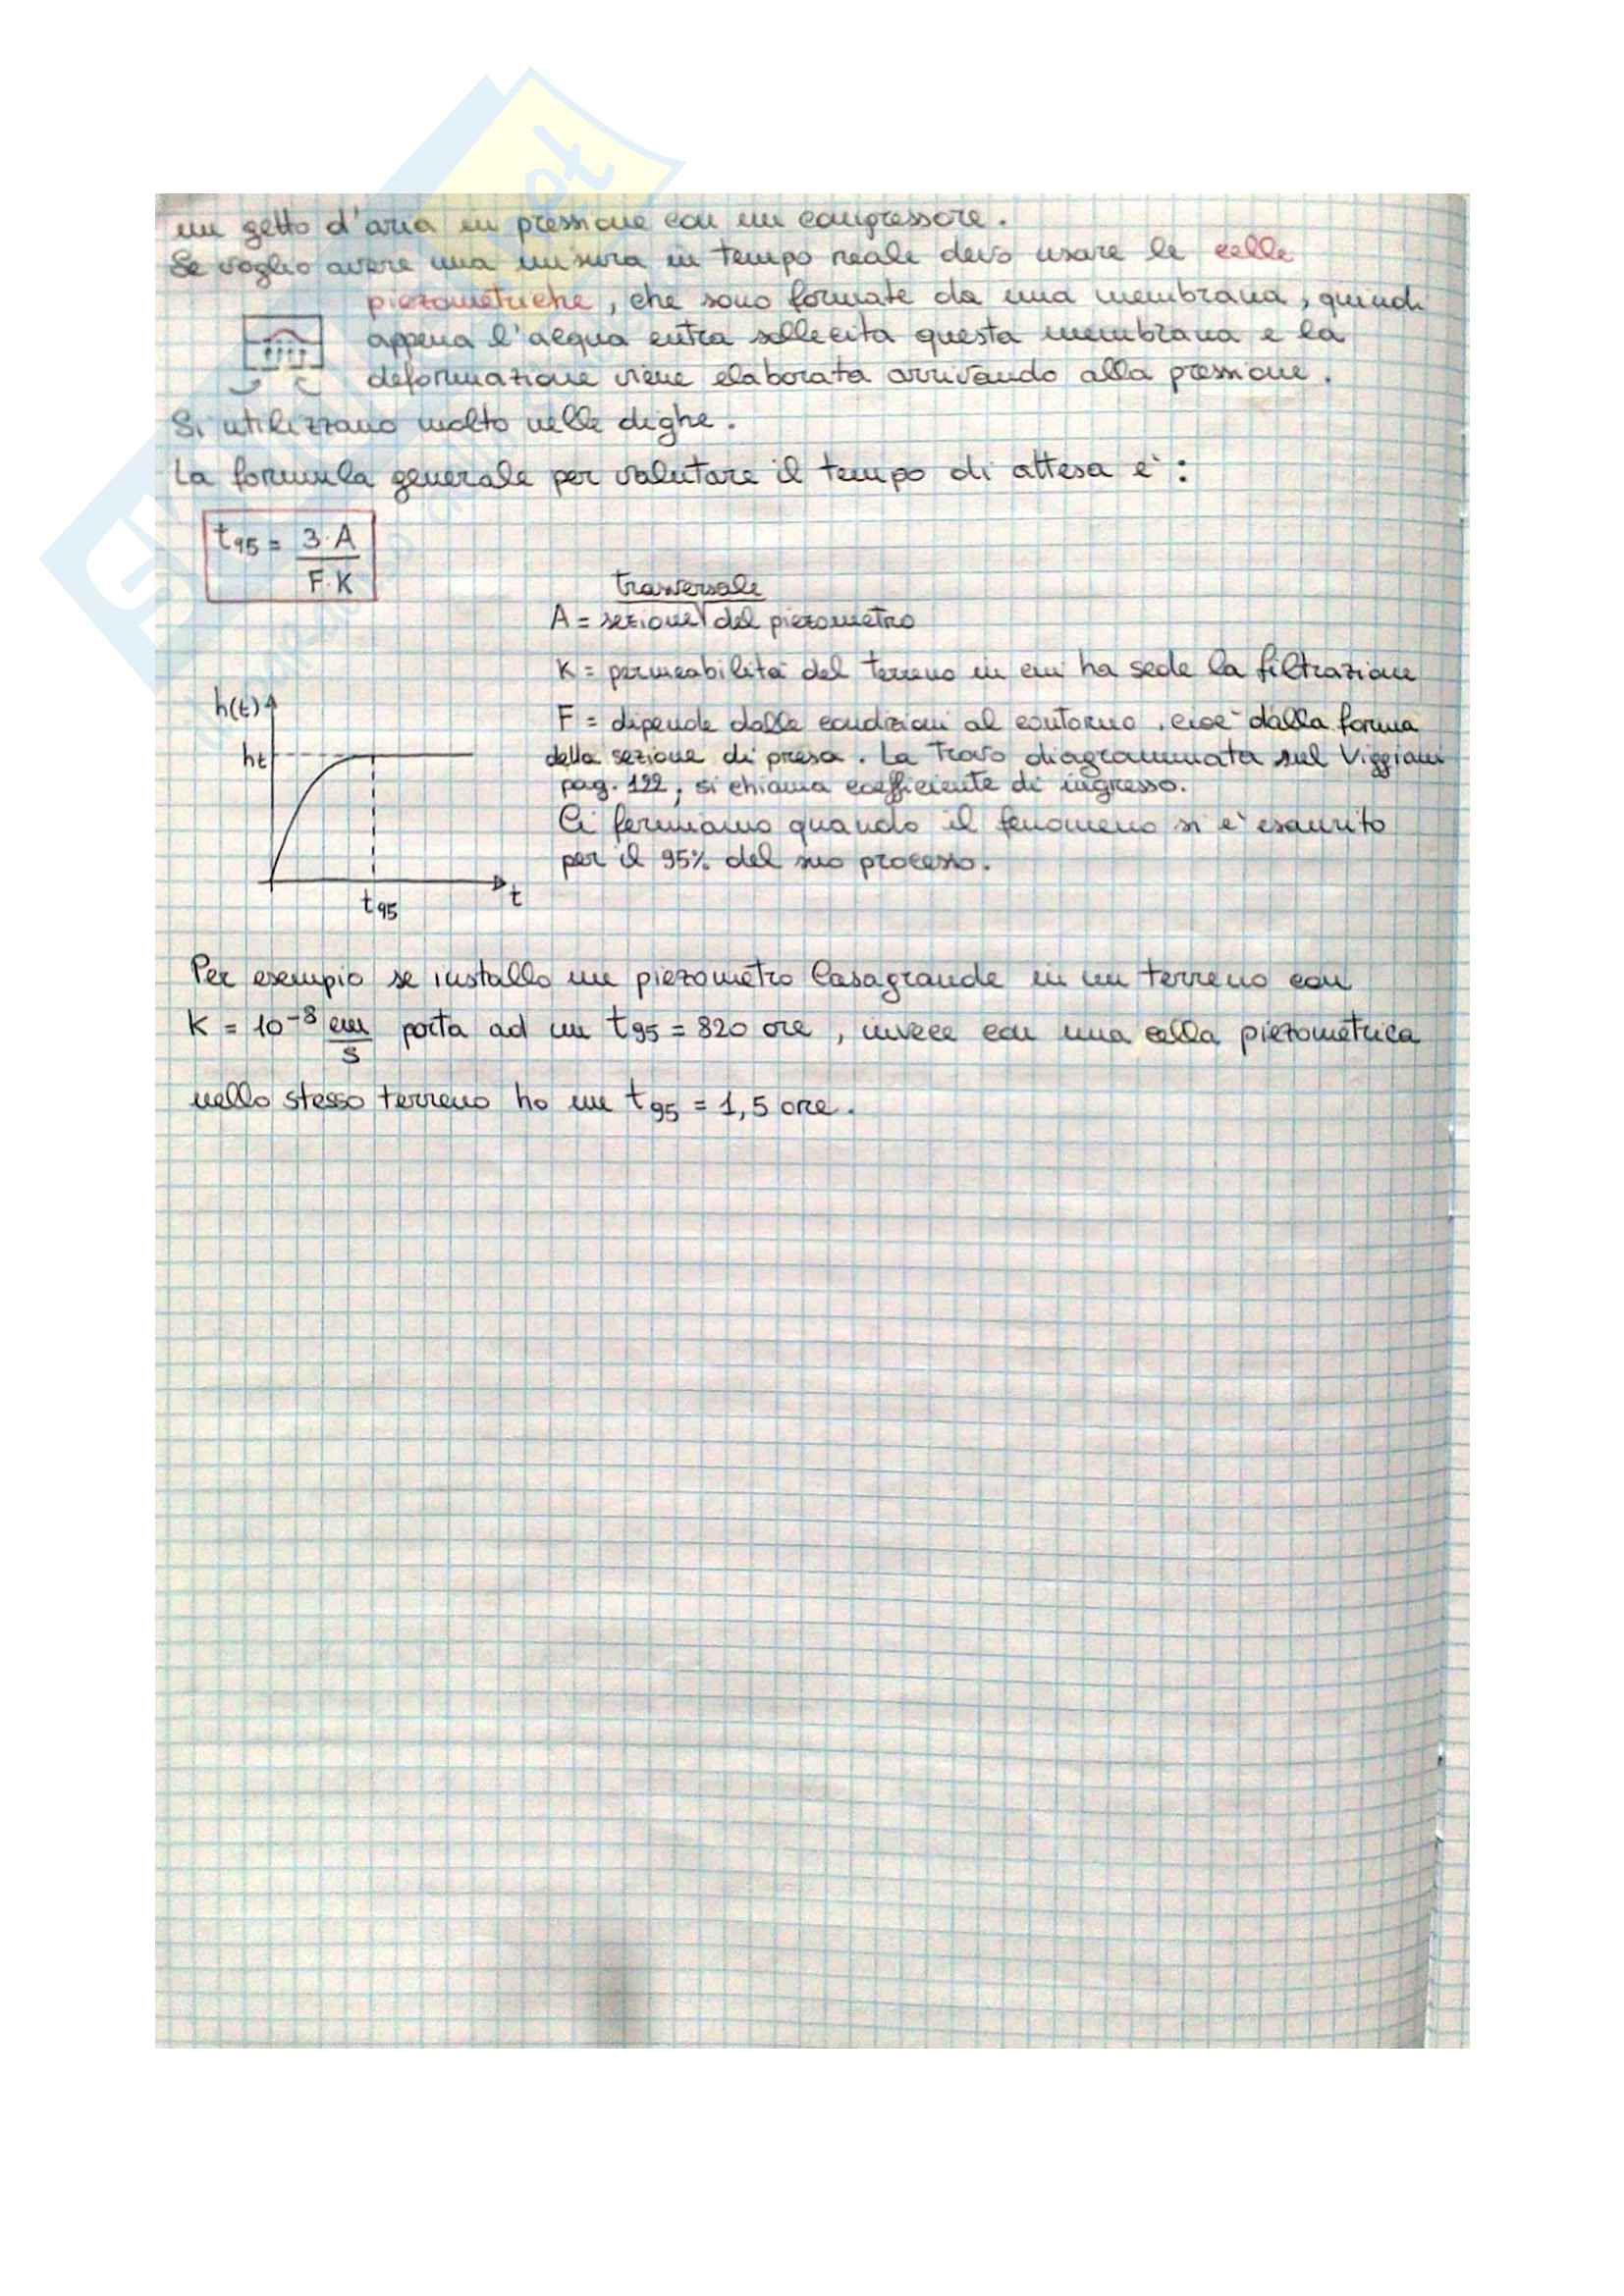 un getto d'aria in pressione con un compressore.
Se voglio avere una misura in tempo reale devo usare le celle
piezometriche, che sono formate da una membrana, quindi
appena l'acqua entra sollecita questa membrana e la
deformazione viene elaborata arrivando alla pressione.
Si utilizzano molto nelle dighe.
La formula generale per valutare il tempo di attesa è:
t95 = 3·A / F·K
trasversale
A = sezione del piezometro
K = permeabilità del terreno in cui ha sede la filtrazione
F = dipende dalle condizioni al contorno, cioè dalla forma
della sezione di presa. La trovo diagrammata sul Viggiani
pag. 122, si chiama coefficiente di ingresso.
Ci fermiamo quando il fenomeno si è esaurito
per il 95% del suo processo.
h(t)
ht
t
t95
Per esempio se installo un piezometro Casagrande in un terreno con
K = 10⁻⁸ cm/s porta ad un t95 = 820 ore, invece con una cella piezometrica
nello stesso terreno ho un t95 = 1,5 ore.